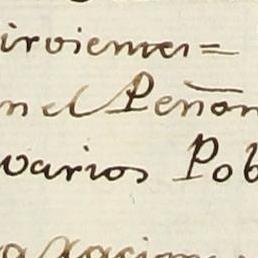 irvientes=
n el Peñon
varios Pob